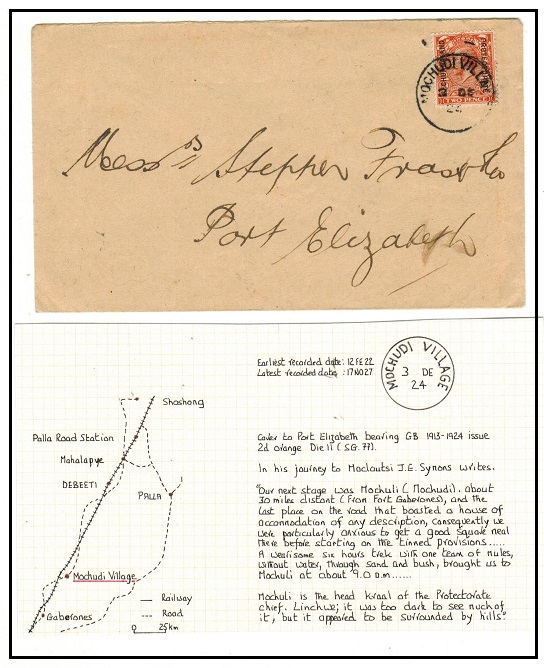 BECHUANALAND PROTECTORATE
TWO PENCE
MOCHUDI VILLAGE
3 DE
24
Mess^rs Stephen Fraser & Co
Port Elizabeth
Earliest recorded date: 12 FE 22
Latest recorded date: 17 NO 27
MOCHUDI VILLAGE
3 DE
24
Shoshong
Palla Road Station
Mahalapye
DEBEETI
PALLA
Mochudi Village
Gaberones
Railway
Road
0 25km
Cover to Port Elizabeth bearing GB 1913-1924 issue
2d orange Die II (S.G. 77).
In his journey to Mocloutsi J.E. Symons writes.
"Our next stage was Mochuli (Mochudi). about
30 miles distant (From Fort Gaberones), and the
last place on the road that boasted a house of
accomodation of any description, consequently we
were particularly anxious to get a good square meal
there before starting on the tinned provisions.....
A wearisome six hours trek with one team of mules,
without water, through sand and bush, brought us to
Mochuli at about 9.0 a.m......
Mochuli is the head kraal of the Protectorate
chief. Linchwe; it was too dark to see much of
it, but it appeared to be surrounded by hills."